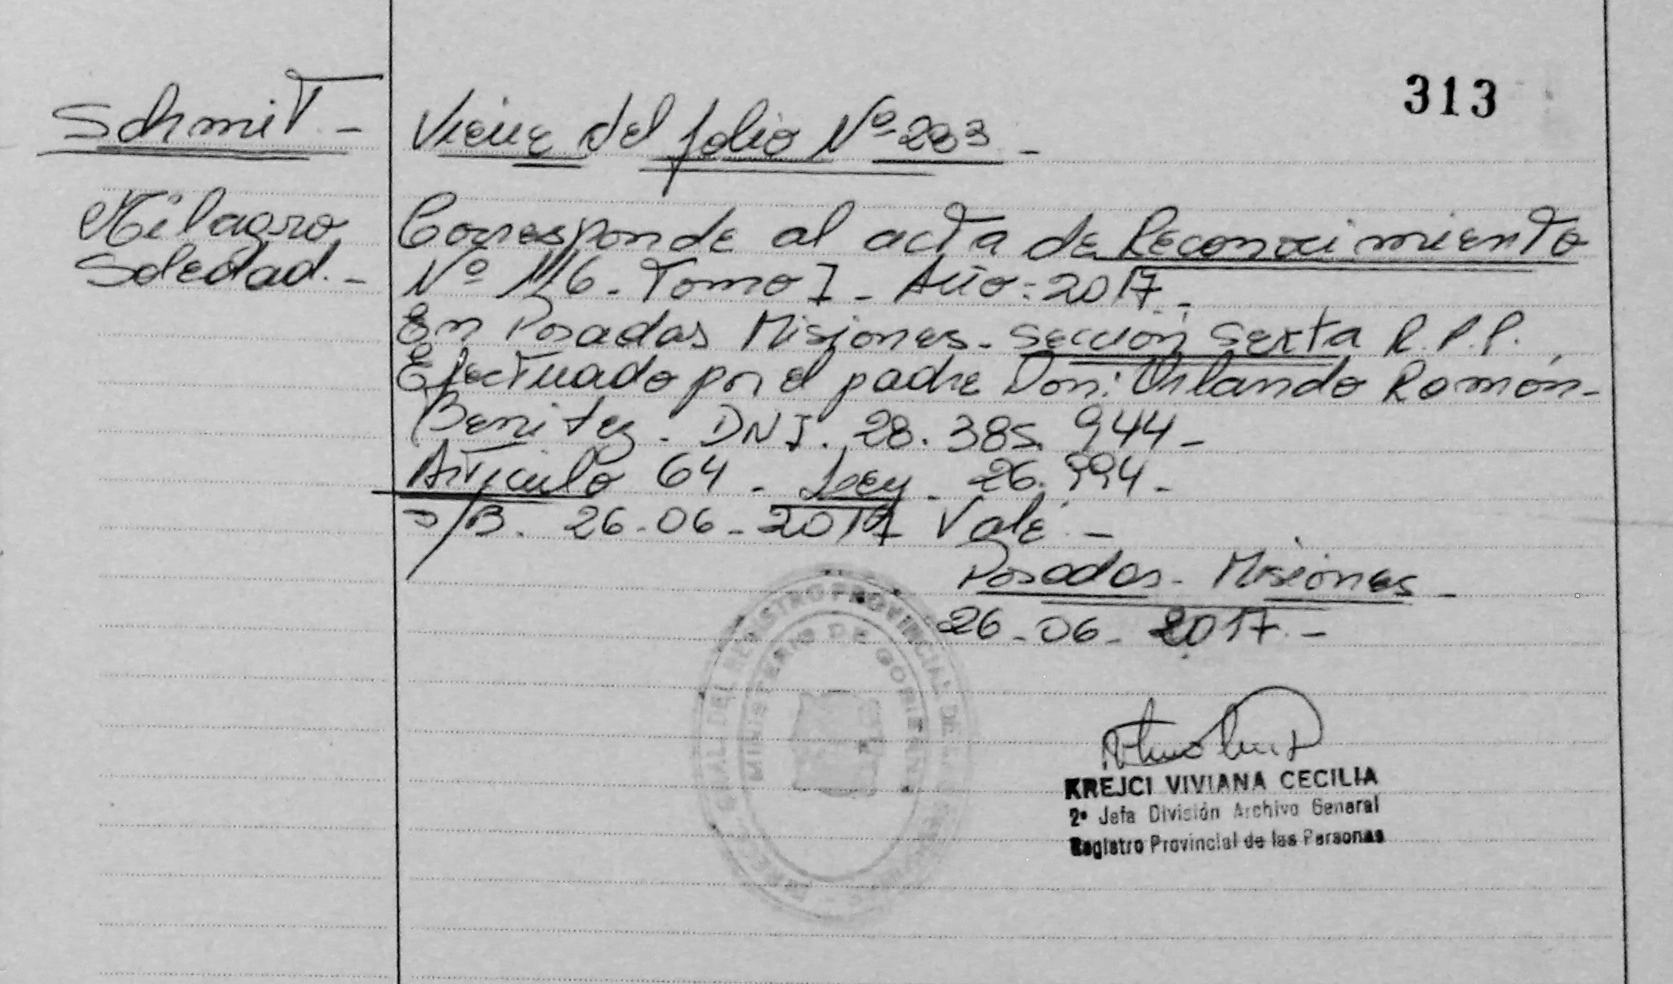 313
Schmit -
Milagro
Soledad. -
Viene del folio Nº 283 -
Corresponde al acta de Reconocimiento
Nº 116 - Tomo I - Año: 2017 -
En Posadas Misiones - Sección Sexta R.P.P.
Efectuado por el padre Don: Orlando Ramón -
Benitez - DNI. 28.385.944 -
Artículo 64 - Ley - 26.994 -
26-06-2017 Vale -
Posadas - Misiones -
26-06-2017 -
REGISTRO PROVINCIAL DE
MINISTERIO DE GOBIERNO
KREJCI VIVIANA CECILIA
2ª Jefa División Archivo General
Registro Provincial de las Personas